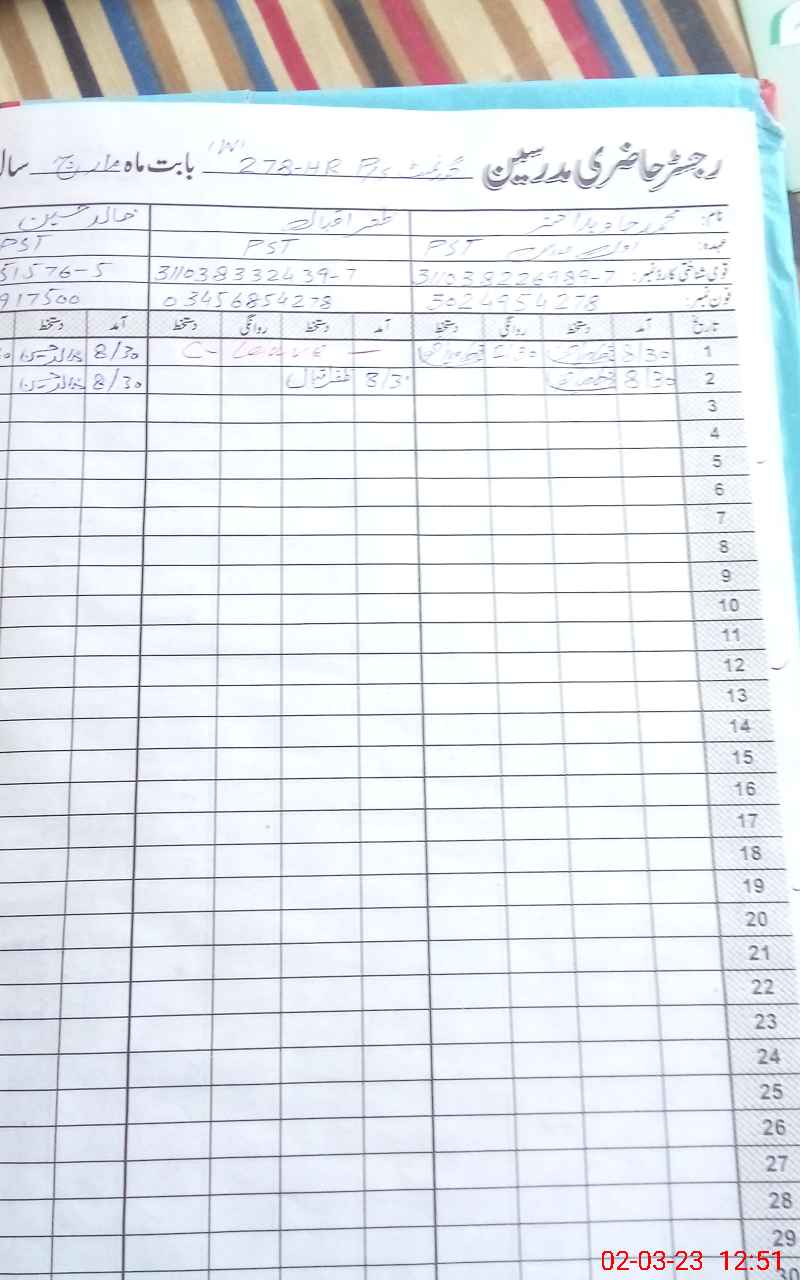 رجسٹر حاضری مدرسین گورنمنٹ P/S 278-HR (W) بابت ماہ مارچ سال
نام: محمد جاوید اختر ظفر اقبال خالد حسین
عہدہ: PST PST PST
قومی شناختی کارڈ نمبر: 311038226989-7 311038332439-7 51576-5
فون نمبر: 3024954278 03456854278 917500
تاریخ آمد دستخط روانگی دستخط آمد دستخط روانگی دستخط آمد دستخط
1 8/30 C- Leave — 8/30
2 8/30 8/30 ظفر اقبال 8/30
3
4
5
6
7
8
9
10
11
12
13
14
15
16
17
18
19
20
21
22
23
24
25
26
27
28
29
30
02-03-23 12:51